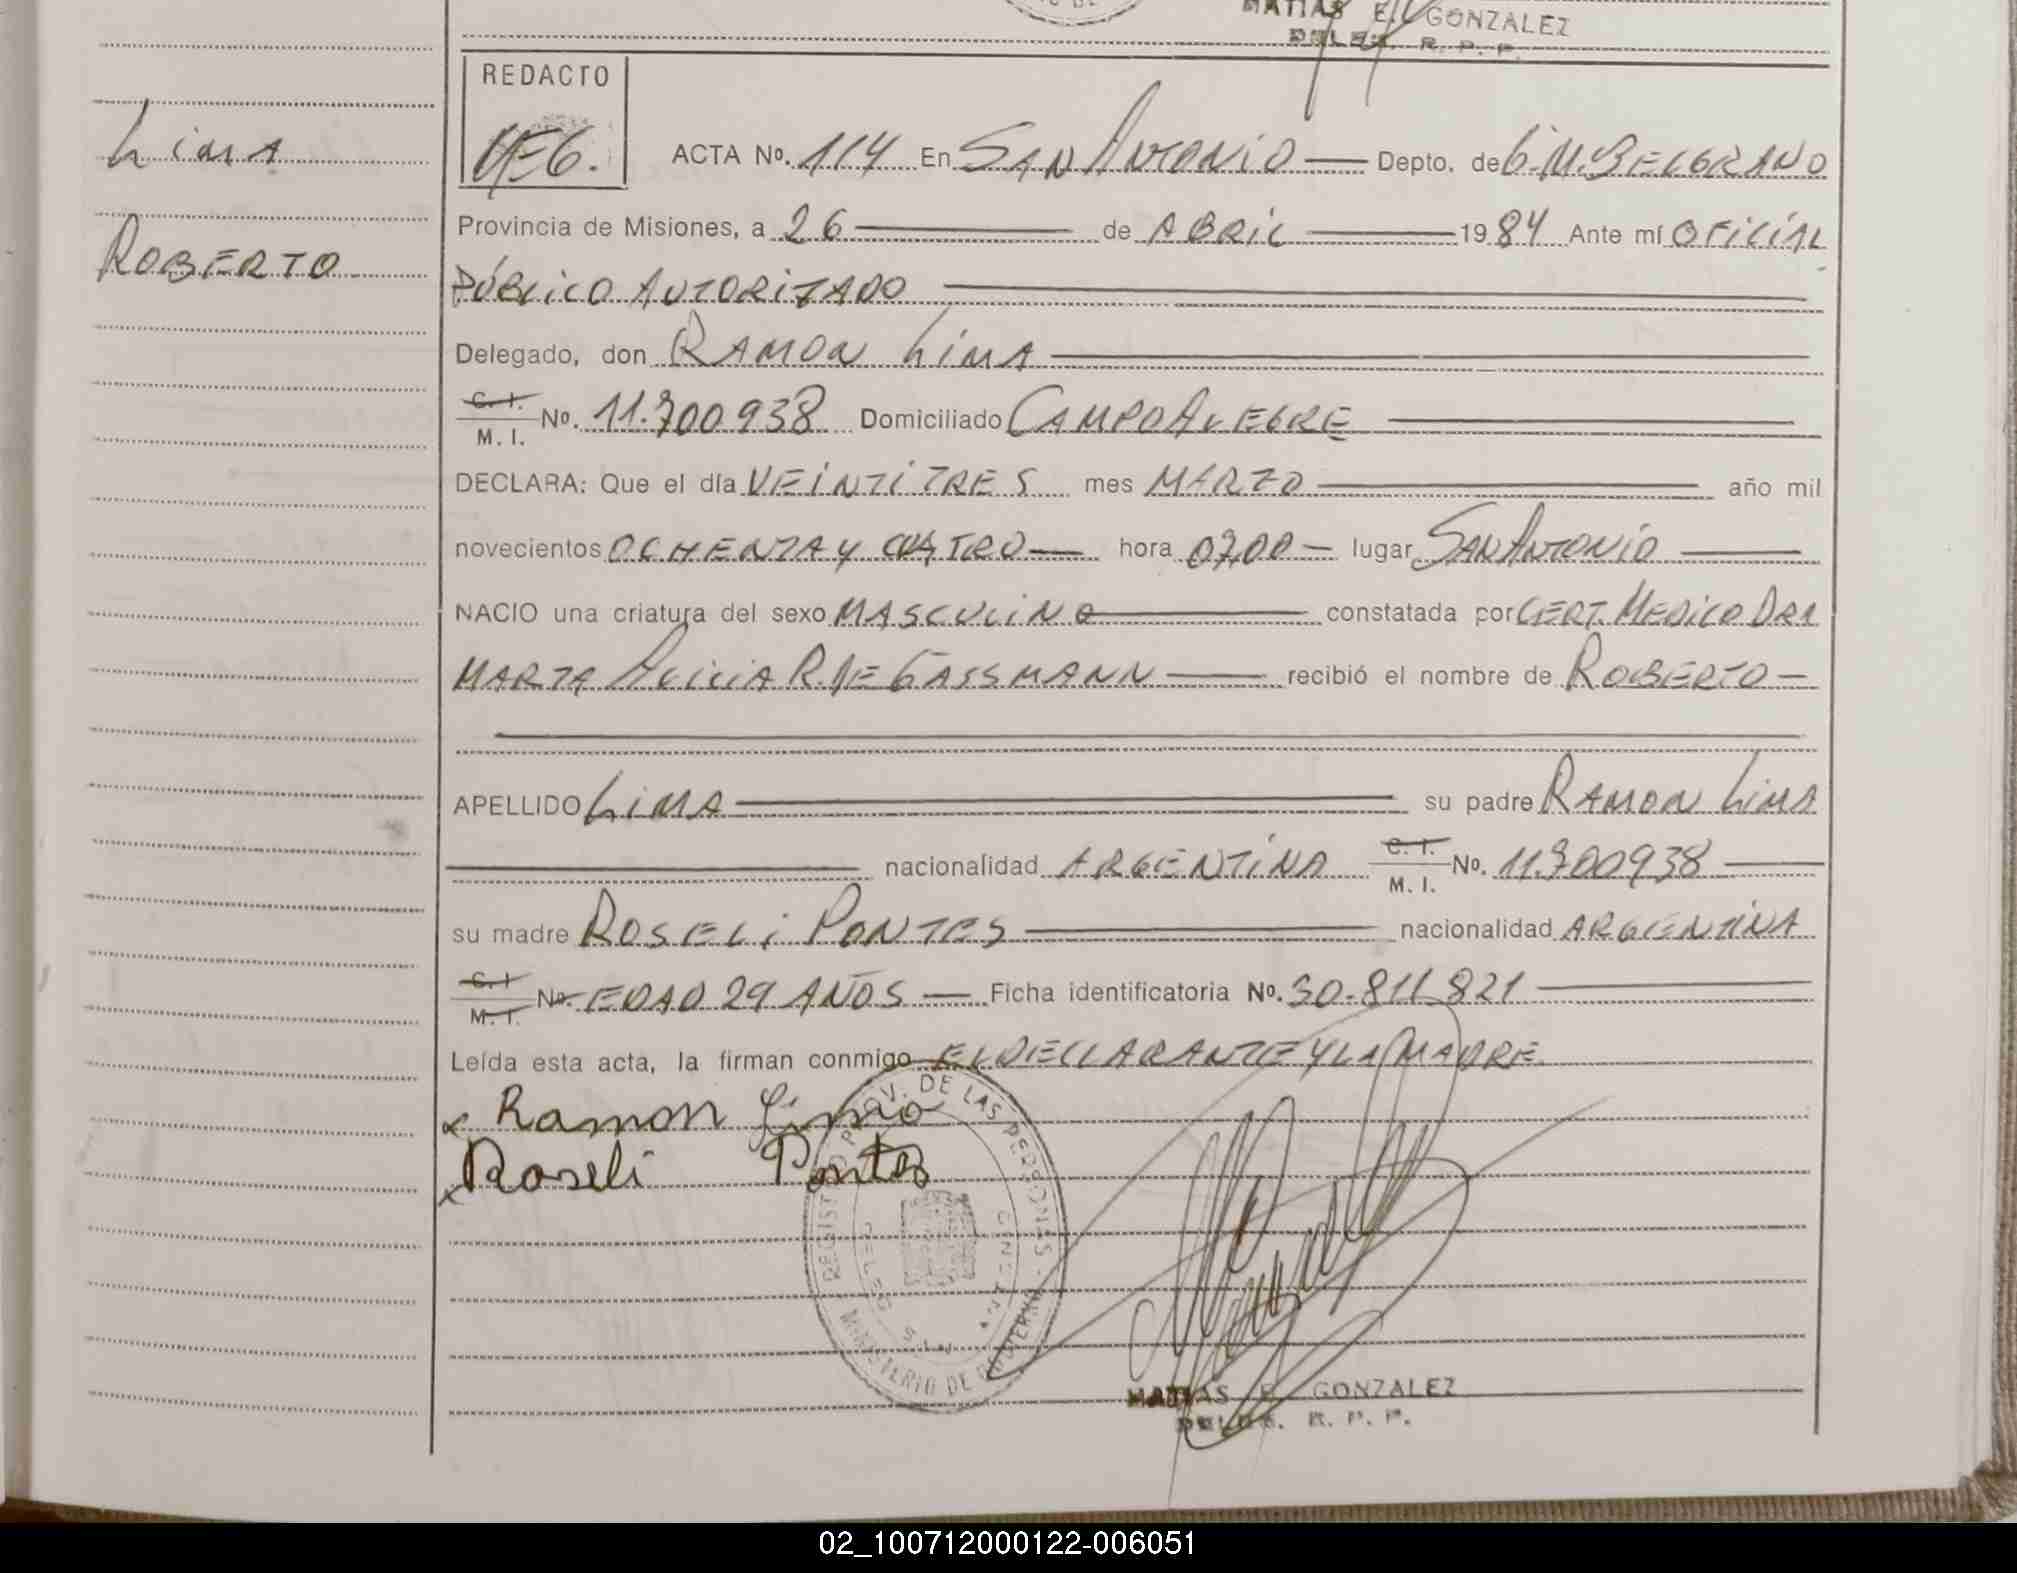 MATIAS E. GONZALEZ
DELEG. R. P. P.
REDACTO
Lima
ROBERTO
ACTA Nº. 114 En SAN ANTONIO Depto. de G.M.BELGRANO
Provincia de Misiones, a 26 de ABRIL 1984 Ante mí OFICIAL
PÚBLICO AUTORIZADO
Delegado, don RAMON LIMA
C. I.
M. I. Nº. 11.700938 Domiciliado CAMPO ALEGRE
DECLARA: Que el día VEINTITRES mes MARZO año mil
novecientos OCHENTA Y CUATRO hora 07,00 lugar SAN ANTONIO
NACIO una criatura del sexo MASCULINO constatada por CERT. MEDICO DRA
MARTA ALICIA R. DE GASSMANN recibió el nombre de ROBERTO
APELLIDO LIMA su padre RAMON LIMA
nacionalidad ARGENTINA C. I. M. I. Nº. 11.700938
su madre ROSELI PONTES nacionalidad ARGENTINA
C. I. M. I. Nº. EDAD 29 AÑOS Ficha identificatoria Nº. 30.811.821
Leída esta acta, la firman conmigo EL DECLARANTE Y LA MADRE
x Ramon Lima
x Roseli Pontes
REGISTRO PROV. DE LAS PERSONAS
MINISTERIO DE GOBIERNO
MATIAS E. GONZALEZ
DELEG. R. P. P.
02_100712000122-006051